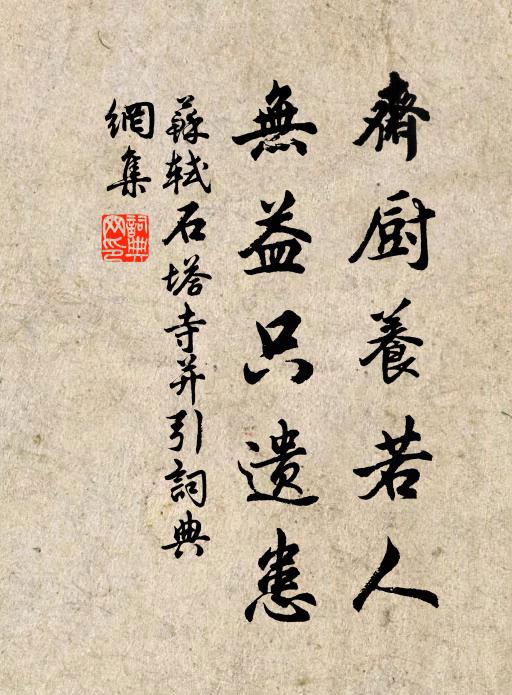 齋厨養若人
無益只遺患
蘇軾石塔寺并引詞典
網集
詞典網印